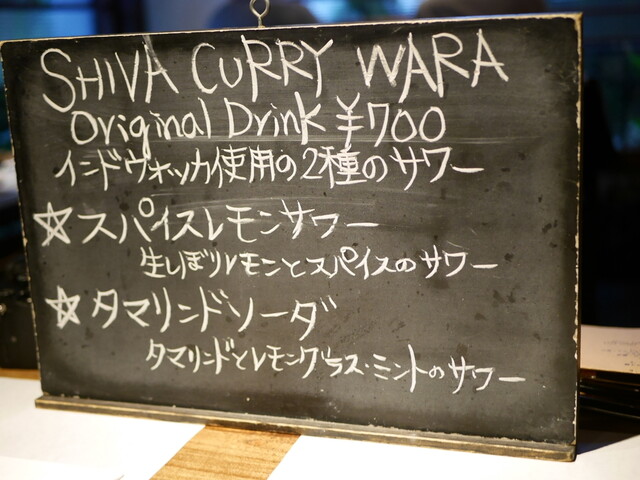 SHIVA CURRY WARA
Original Drink ¥700
インドヴォッカ使用の2種のサワー
☆スパイスレモンサワー
生しぼりレモンとスパイスのサワー
☆タマリンドソーダ
タマリンドとレモングラス・ミントのサワー